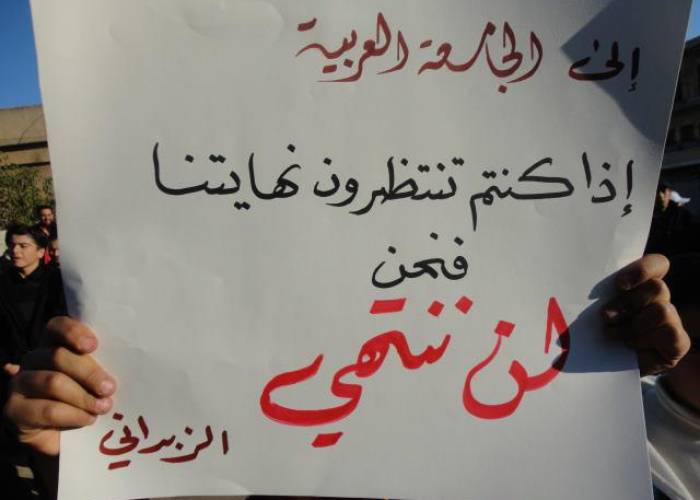 إلى الجامعة العربية
إذا كنتم تنتظرون نهايتنا
فنحن
لن ننتهي
الزبداني